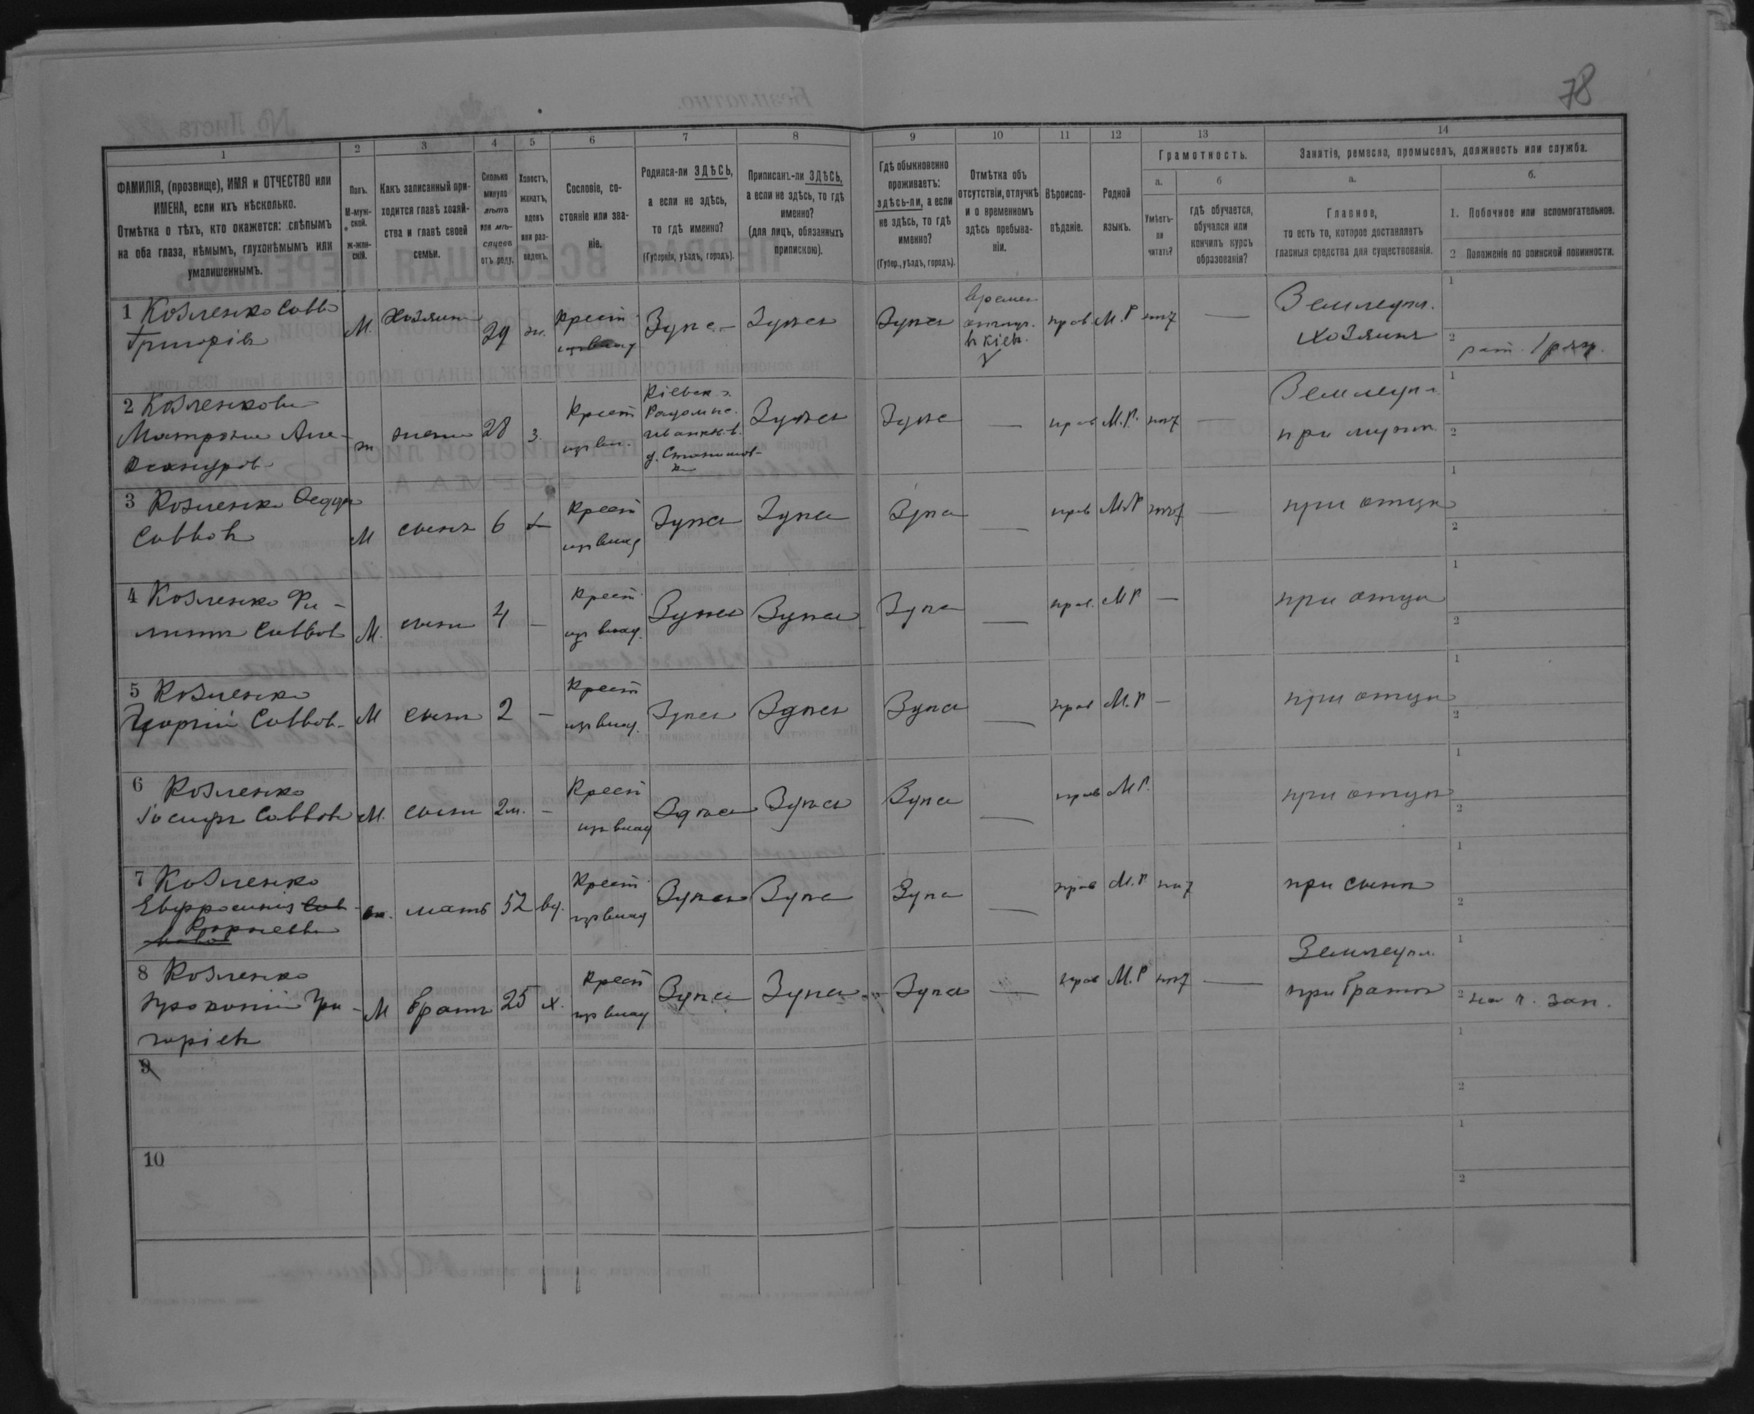 78
1
2
3
4
5
6
7
8
9
10
11
12
13
14
ФАМИЛІЯ, (прозвище), ИМЯ и ОТЧЕСТВО или
ИМЕНА, если ихъ нѣсколько.
Отмѣтка о тѣхъ, кто окажется: слѣпымъ
на оба глаза, нѣмымъ, глухонѣмымъ или
умалишеннымъ.
Полъ.
М-муж-
ской.
ж-жен-
скій.
Какъ записанный при-
ходится главѣ хозяй-
ства и главѣ своей
семьи.
Сколько
минуло
лѣтъ
или мѣ-
сяцевъ
отъ роду.
Холостъ,
женатъ,
вдовъ
или раз-
веденъ.
Сословіе, со-
стояніе или зва-
ніе.
Родился-ли ЗДѢСЬ,
а если не здѣсь,
то гдѣ именно?
(Губернія, уѣздъ, городъ).
Приписанъ-ли ЗДѢСЬ,
а если не здѣсь, то гдѣ
именно?
(для лицъ, обязанныхъ
припискою).
Гдѣ обыкновенно
проживаетъ:
здѣсь-ли, а если
не здѣсь, то гдѣ
именно?
(Губер., уѣздъ, городъ).
Отмѣтка объ
отсутствіи, отлучкѣ
и о временномъ
здѣсь пребыва-
ніи.
Вѣроиспо-
вѣданіе.
Родной
языкъ.
Грамотность.
а.
Умѣетъ-
ли
читать?
б
гдѣ обучается,
обучался или
кончилъ курсъ
образованія?
Занятія, ремесло, промыселъ, должность или служба.
а.
Главное,
то есть то, которое доставляетъ
главныя средства для существованія.
б.
1. Побочное или вспомогательное.
2 Положеніе по воинской повинности.
1 Козленко Савва
Григорів
М.
Хозяин
29
ж.
крест
Здѣс
Здѣсь
Здѣсь
времен
отлуч.
в Кіев.
прав
М.Р
нѣт
Земледѣл.
хозяинъ
1
2
рат. 1 раз.
2 Козленкова
Матрона Але-
ксандров
ж
жена
28
з.
Крест
из вл.
Кіевск.
Радомыс.
Иванк. в.
Здѣсь
Здѣсь
—
прав
М.Р.
нѣт
—
Земледѣл
при мужѣ
1
2
3 Козленко Федор
Саввов
М
сынъ
6
Крест
из влад
Здѣсь
Здѣсь
Здѣсь
—
прав
М.Р
нѣт
—
при отцѣ
1
2
4 Козленко Фи-
липп Саввов
М.
сынъ
4
—
Крест
из влад.
Здѣсь
Здѣсь
Здѣсь
—
прав.
М.Р
—
при отцѣ
1
2
5 Козленко
Георгій Саввов.
М
сынъ
2
—
Крест
из влад.
Здѣсь
Здѣсь
Здѣсь
—
прав
М.Р
—
при отцѣ
1
2
6 Козленко
Іосиф Саввов
М.
сынъ
2 м.
—
Крест
из влад
Здѣсь
Здѣсь
Здѣсь
—
прав
М.Р.
при отцѣ
1
2
7 Козленко
Евфросинія
ж.
мать
52
вд.
Крест
из влад
Здѣсь
Здѣсь
Здѣсь
—
прав
М.Р
нѣт
при сынѣ
1
2
8 Козленко
Прокопій Гри-
горіев
М
братъ
25
х.
Крест
из влад
Здѣсь
Здѣсь
Здѣсь
—
прав
М.Р
нѣт
—
Земледѣл.
при братѣ
1
2 на г. зап.
9
1
2
10
1
2